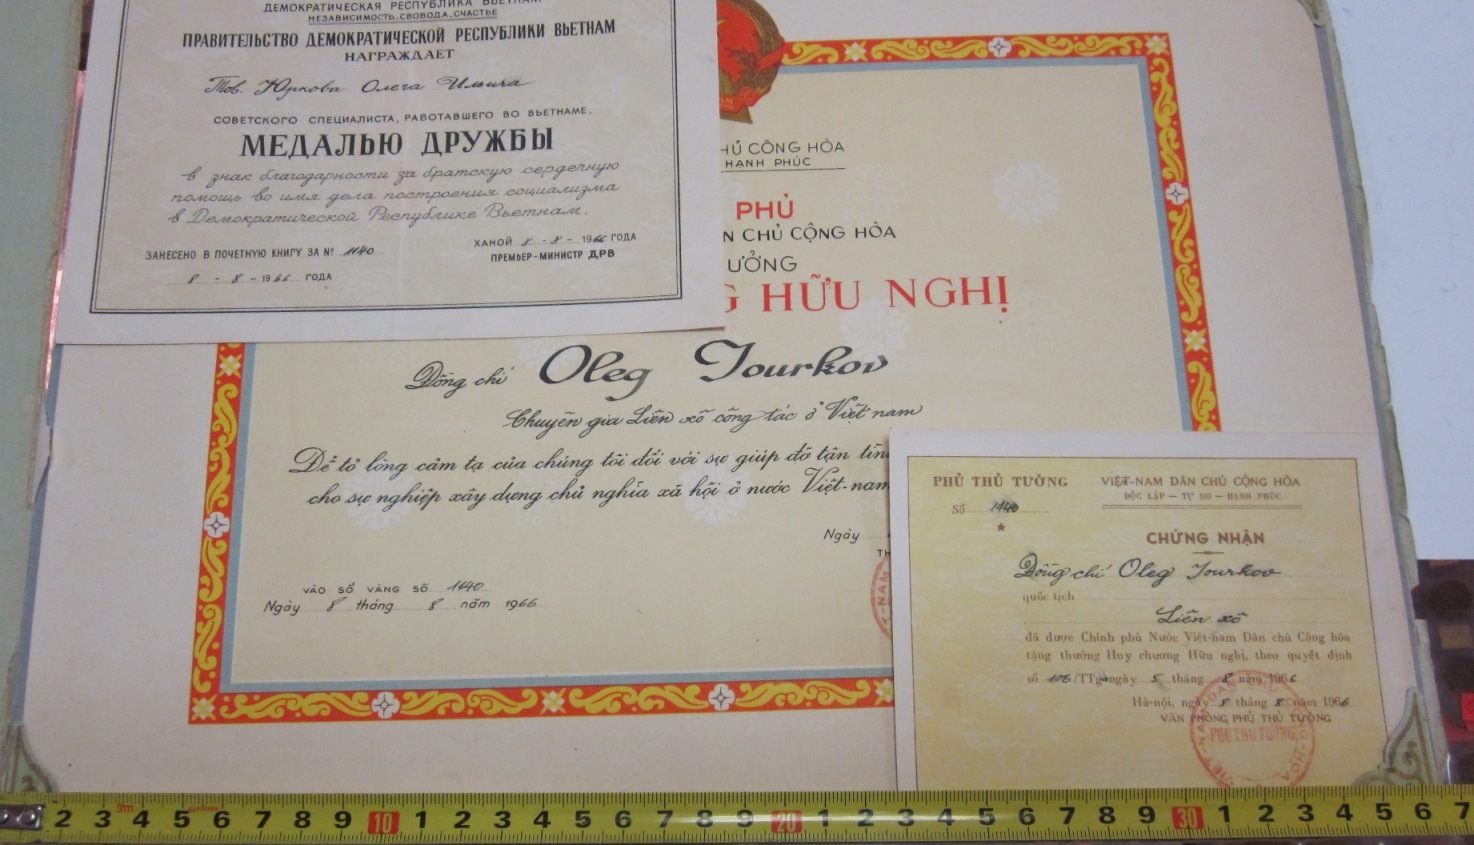 ДЕМОКРАТИЧЕСКАЯ РЕСПУБЛИКА ВЬЕТНАМ
НЕЗАВИСИМОСТЬ, СВОБОДА, СЧАСТЬЕ
ПРАВИТЕЛЬСТВО ДЕМОКРАТИЧЕСКОЙ РЕСПУБЛИКИ ВЬЕТНАМ
НАГРАЖДАЕТ
Тов. Юркова Олега Ильича
СОВЕТСКОГО СПЕЦИАЛИСТА, РАБОТАВШЕГО ВО ВЬЕТНАМЕ,
МЕДАЛЬЮ ДРУЖБЫ
в знак благодарности за братскую сердечную
помощь во имя дела построения социализма
в Демократической Республике Вьетнам.
ЗАНЕСЕНО В ПОЧЕТНУЮ КНИГУ ЗА № 1140
8 - 8 - 1966 ГОДА
ХАНОЙ 8 - 8 - 1966 ГОДА
ПРЕМЬЕР-МИНИСТР ДРВ
Ủ CỘNG HÒA
HẠNH PHÚC
PHỦ
N CHỦ CỘNG HÒA
ƯỞNG
G HỮU NGHỊ
Đồng chí Oleg Iourkov
Chuyên gia Liên xô công tác ở Việt nam
Để tỏ lòng cảm tạ của chúng tôi đối với sự giúp đỡ tận tìn
cho sự nghiệp xây dựng chủ nghĩa xã hội ở nước Việt-nam
Ngày
TH
VÀO SỔ VÀNG SỐ 1140
Ngày 8 tháng 8 năm 1966
PHỦ THỦ TƯỚNG
Số 1140
VIỆT-NAM DÂN CHỦ CỘNG HÒA
ĐỘC LẬP — TỰ DO — HẠNH PHÚC
CHỨNG NHẬN
Đồng chí Oleg Iourkov
quốc tịch
Liên xô
đã được Chính phủ Nước Việt-nam Dân chủ Cộng hòa
tặng thưởng Huy chương Hữu nghị, theo quyết định
số 106/TTg ngày 5 tháng 8 năm 1966
Hà-nội, ngày 8 tháng 8 năm 1966
VĂN PHÒNG PHỦ THỦ TƯỚNG
PHỦ THỦ TƯỚNG
3m
2 3 4 5 6 7 8 9 10 1 2 3 4 5 6 7 8 9 20 1 2 3 4 5 6 7 8 9 30 1 2 3 4 5 6 7